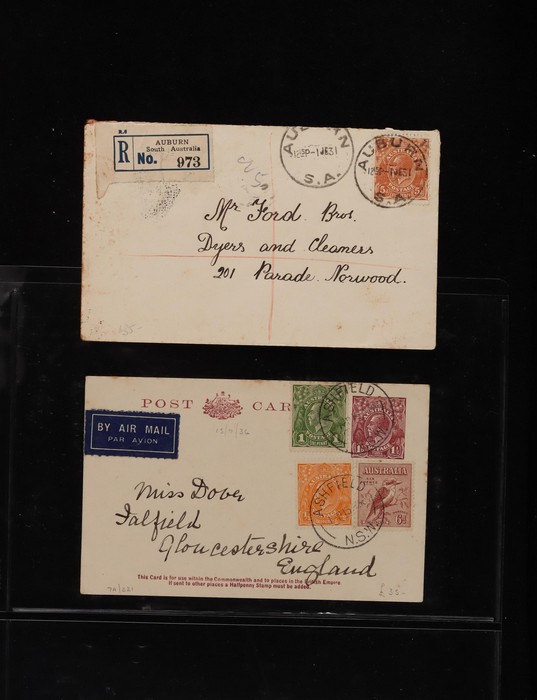 R
AUBURN
South Australia
No. 973
AUBURN
S.A.
AUBURN
S.A.
Mr Ford Bros.
Dyers and Cleaners
201 Parade. Norwood.
POST CAR
BY AIR MAIL
PAR AVION
ASHFIELD
AUSTRALIA
6D
ASHFIELD
N.S.W
Miss Dover
Falfield
Gloucestershire
England
This Card is for use within the Commonwealth and to places in the British Empire.
If sent to other places a Halfpenny Stamp must be added.